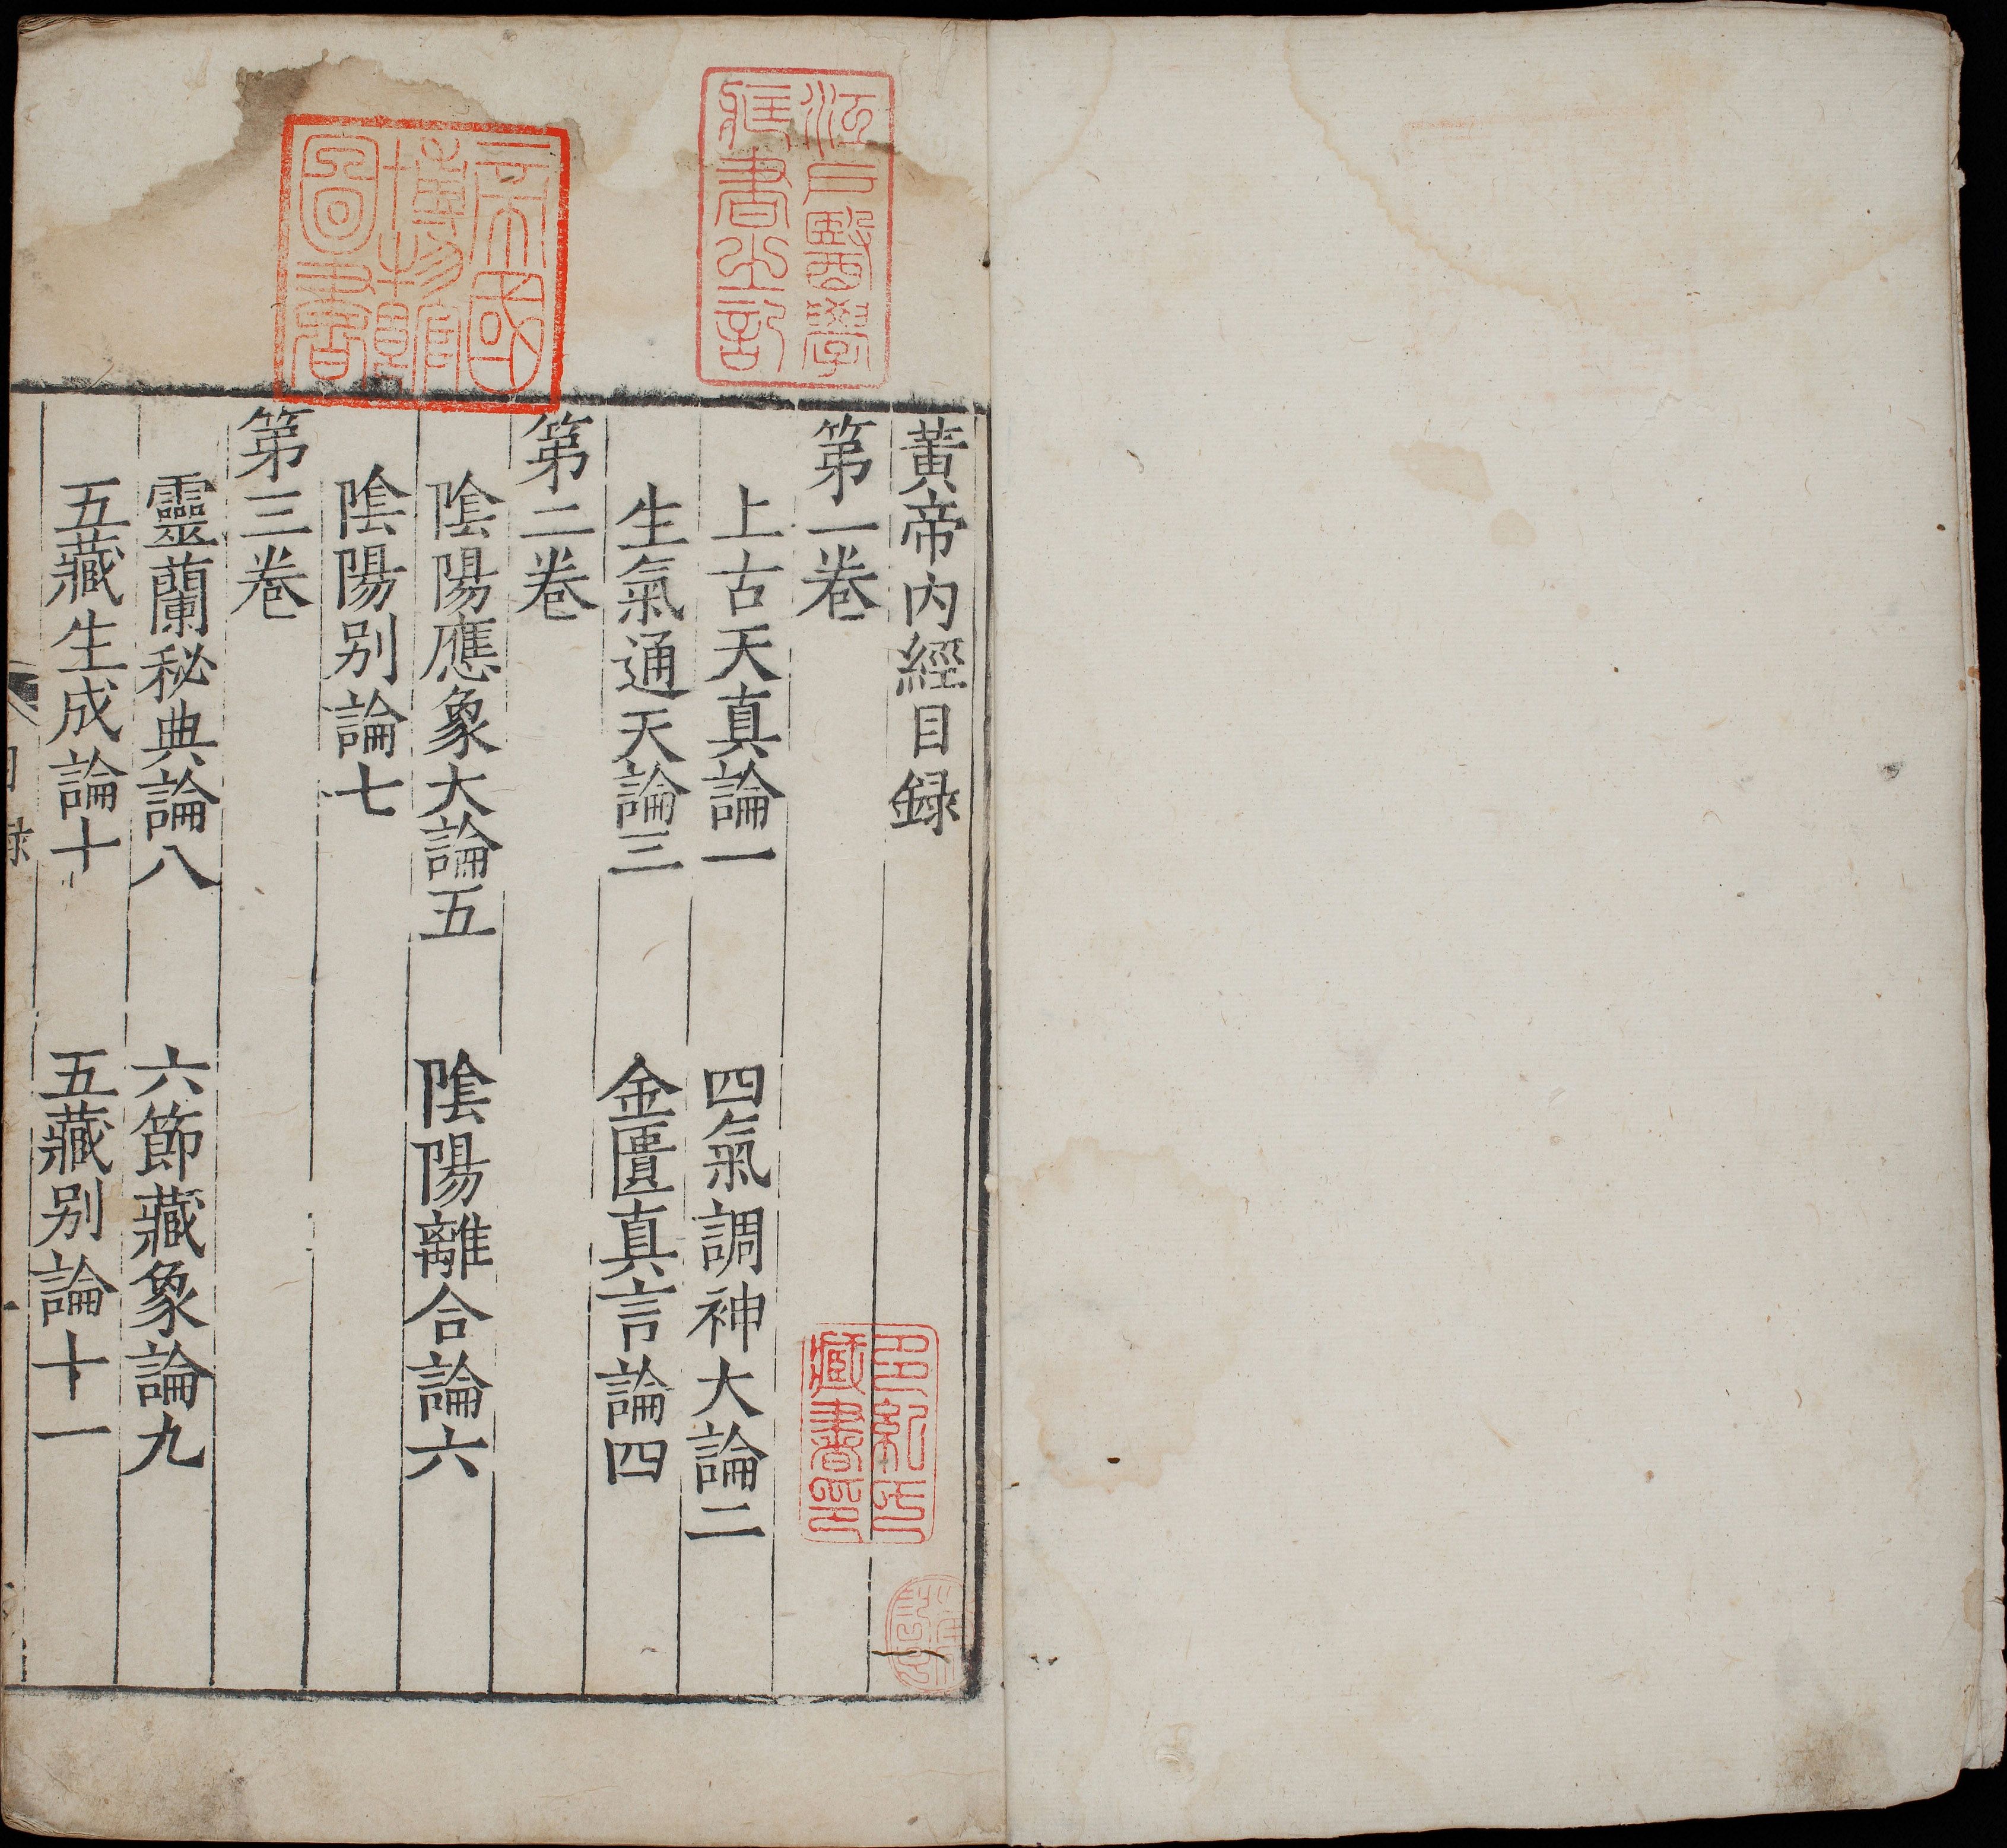 黃帝內經目録
第一卷
上古天真論一　四氣調神大論二
生氣通天論三　金匱真言論四
第二卷
陰陽應象大論五　陰陽離合論六
陰陽别論七
第三卷
靈蘭秘典論八　六節藏象論九
五藏生成論十　五藏别論十一
江戸醫學
藏書之記
帝國
博物館
圖書
多紀氏
藏書印